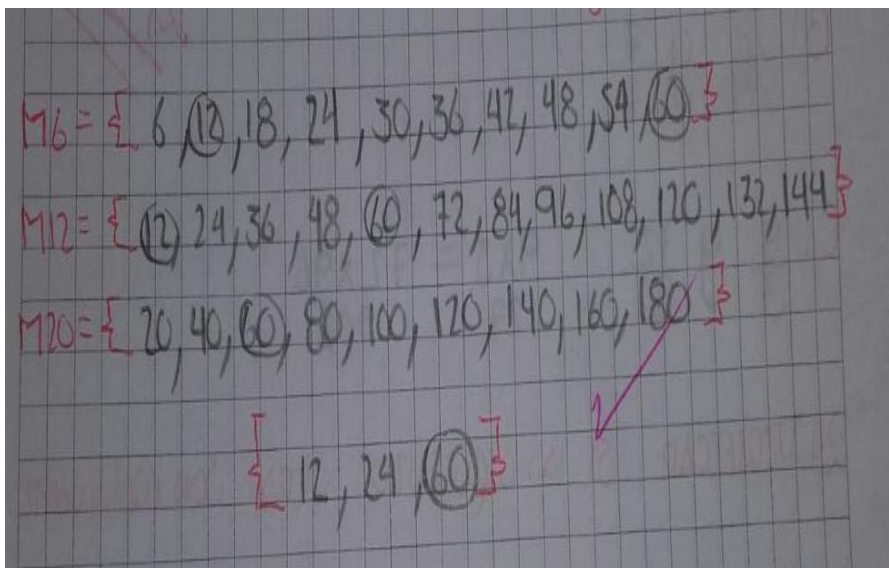 M6={ 6,12,18,24,30,36,42,48,54,60}
M12={12,24,36,48,60,72,84,96,108,120,132,144}
M20={20,40,60,80,100,120,140,160,180}
{12,24,60}